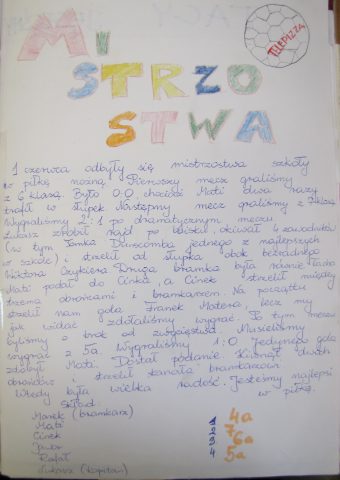 MI
STRZO
STWA
TELEPIZZA
1 czerwca odbyły się mistrzostwa szkoły
w piłkę nożną. Pierwszy mecz graliśmy
z 6 klasą. Było 0:0, chociaż Mati dwa razy
trafił w słupek. Następny mecz graliśmy z klasą
Wygraliśmy 2:1 po dramatycznym meczu.
Łukasz zrobił rajd po boisku, okiwał 4 zawodników
(w tym Tomka Dunscomba jednego z najlepszych
w szkole) i strzelił od słupka obok bezradnego
Wiktora Czykiera. Druga bramka była równie ładna
Mati podał do Cinka, a Cinek strzelił między
dwoma obrońcami i bramkarzem. Na początku
strzelił nam gola Franek Matera, lecz my
jak widać zdołaliśmy wygrać. Po tym meczu
byliśmy o krok od zwycięstwa. Musieliśmy
wygrać z 5a. Wygraliśmy 1:0. Jedynego gola
zdobył Mati. Dostał podanie. Kiwnął dwóch
obrońców i strzelił bramkarzowi.
Wtedy była wielka radość. Jesteśmy najlepsi
w piłkę.
Skład:
Marek (bramkarz)
Mati
Cinek
Rafał
Łukasz (kapitan)
1 4a
2 7
3 6a
4 5a